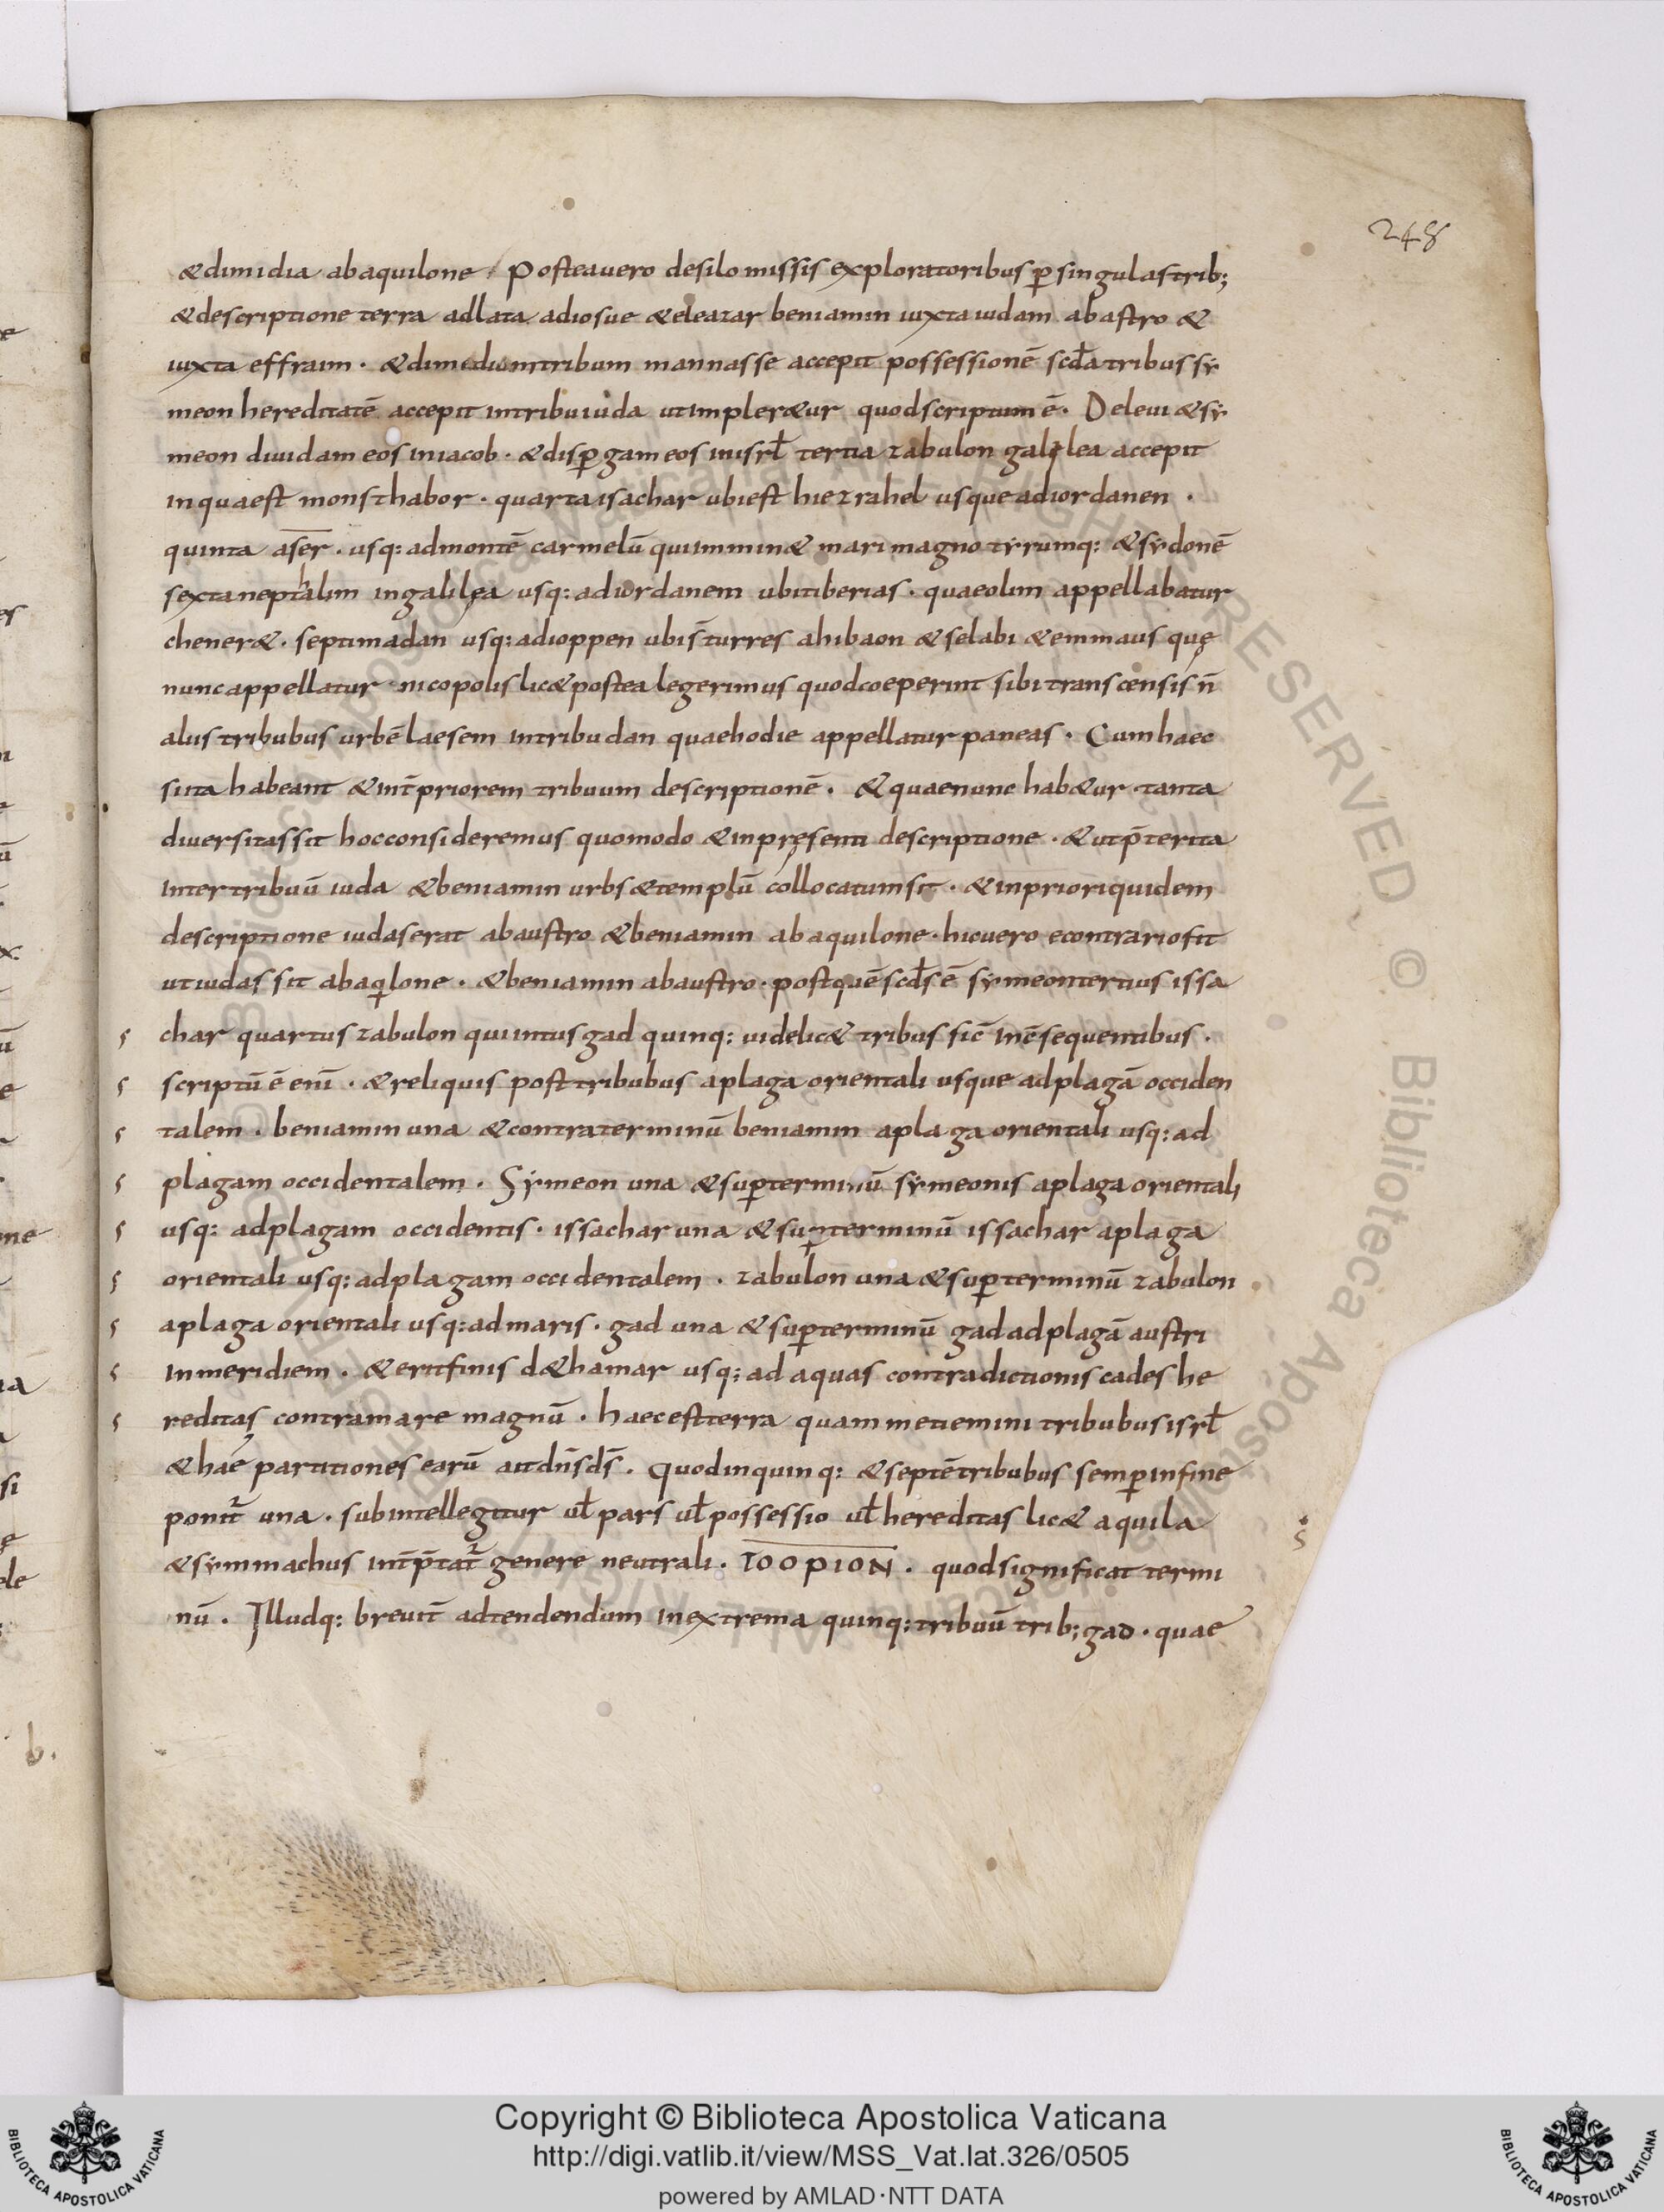 248
&dimidia abaquilone / Posteauero desilo missis exploratoribus ꝑ singulas trib;
&descriptione terra adlata adiosue &eleazar beniamin iuxta iudam abastro &
iuxta effraim · &dimidiumtribum mannasse accepit possessionē scd̄a tribus sy
meon hereditatē accepit intribuiuda utimpler&ur quodscriptum ē · Deleui &sy
meon diuidam eos iniacob · &disꝑgam eos inisrł tertia zabulon galilea accepit
inquaest monsthabor · quarta isachar ubiest hiezrahel usque adiordanen ·
quinta as̄er̄ · usq: admontē carmelū quiimmin& mari magno tyrumq: &sydonē
sextaneptalim ingalilęa usq: adiordanem ubitiberias · quaeolim appellabatur
chener& · septimadan usq: adioppen ubis̄ turres ahibaon &selabi &emmaus quę
nuncappellatur · nicopolis lic&postea legerimus quodcoeperint sibi transcensis n̄
aliis tribubus urbē laesem intribu dan quaehodie appellatur paneas · Cumhaec
sita habeant &int̄ priorem tribuum descriptionē · &quaenunc hab&ur · tanta
diuersitassit hocconsideremus quomodo &inpręsenti descriptione · &utp̄terita
inter tribuū iuda &beniamin urbs &templū collocatumsit · &inprioriquidem
descriptione iudaserat abaustro &beniamin abaquilone · hicuero econtrariofit
utiudas sit abaqilone · &beniamin abaustro · postquē scd̄s ē symeontertius issa
char quartus zabulon quiintus gad quinq: uidelic& tribus sic̄ inē sequentibus ·
scriptū ē eni̅ · &reliquis posttribubus aplaga orientali usque adplagā occiden
talem · beniamin una &contraterminū beniamin aplaga orientali usq: ad
plagam occidentalem · Symeon una &suꝑterminū symeonis aplaga orientali
usq: adplagam occidentis · issachar una &suꝑterminū issachar aplaga
orientali usq: adplagam occidentalem · zabulon una &suꝑterminū zabulon
aplaga orientali usq: admaris · gad una &suꝑterminū gadadplagā austri
inmeridiem · &eritfinis d&hamar usq: ad aquas contradictionis cades he
reditas contramare magnū · haecestterra quam metiemini tribubus isrł
&haé partitiones earū aitdn̄sds̄ · quodinquinq: &septē tribubus semꝑinfine
ponit᷑ una · subintellegitur uł pars uł possessio uł hereditas lic& aquila
&symmachus int̄p̄tat᷑ genere neutrali · TOOPION · quodsignificat termi
nū · Illudq: breuit̄ adtendendum inextrema quinq: tribuū trib; gad · quae
b.
Copyright © Biblioteca Apostolica Vaticana
http://digi.vatlib.it/view/MSS_Vat.lat.326/0505
powered by AMLAD·NTT DATA